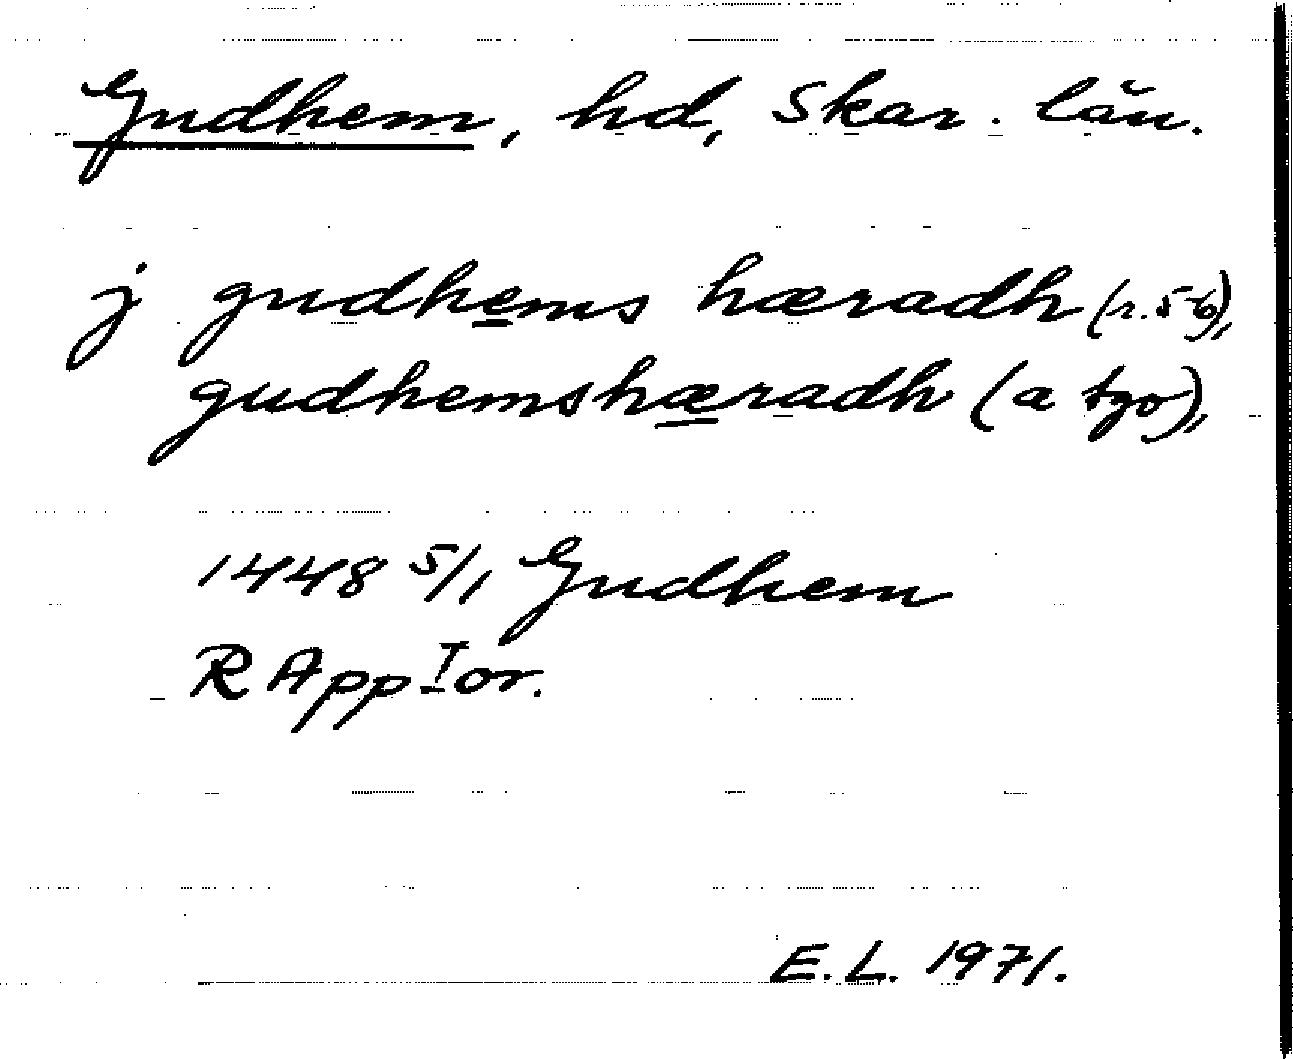 Gudhem, hd, Skar. län.
j gudhems hæradh (r. 5-6),,
gudhemshæradh (a tgo),,
1448 5/1 Gudhem
RAppI or.
E.L. 1971.